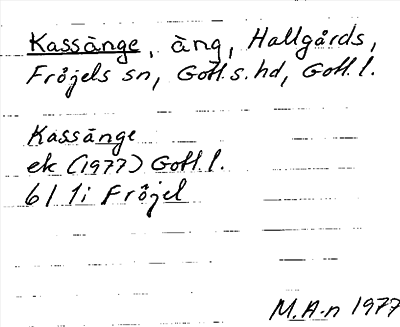 Kassänge, äng, Hallgårds,
Fröjels sn, Gotl.s.hd, Gotl.l.
Kassänge
ek (1977) Gotl.l.
6I 1i Fröjel
M.A-n 1977